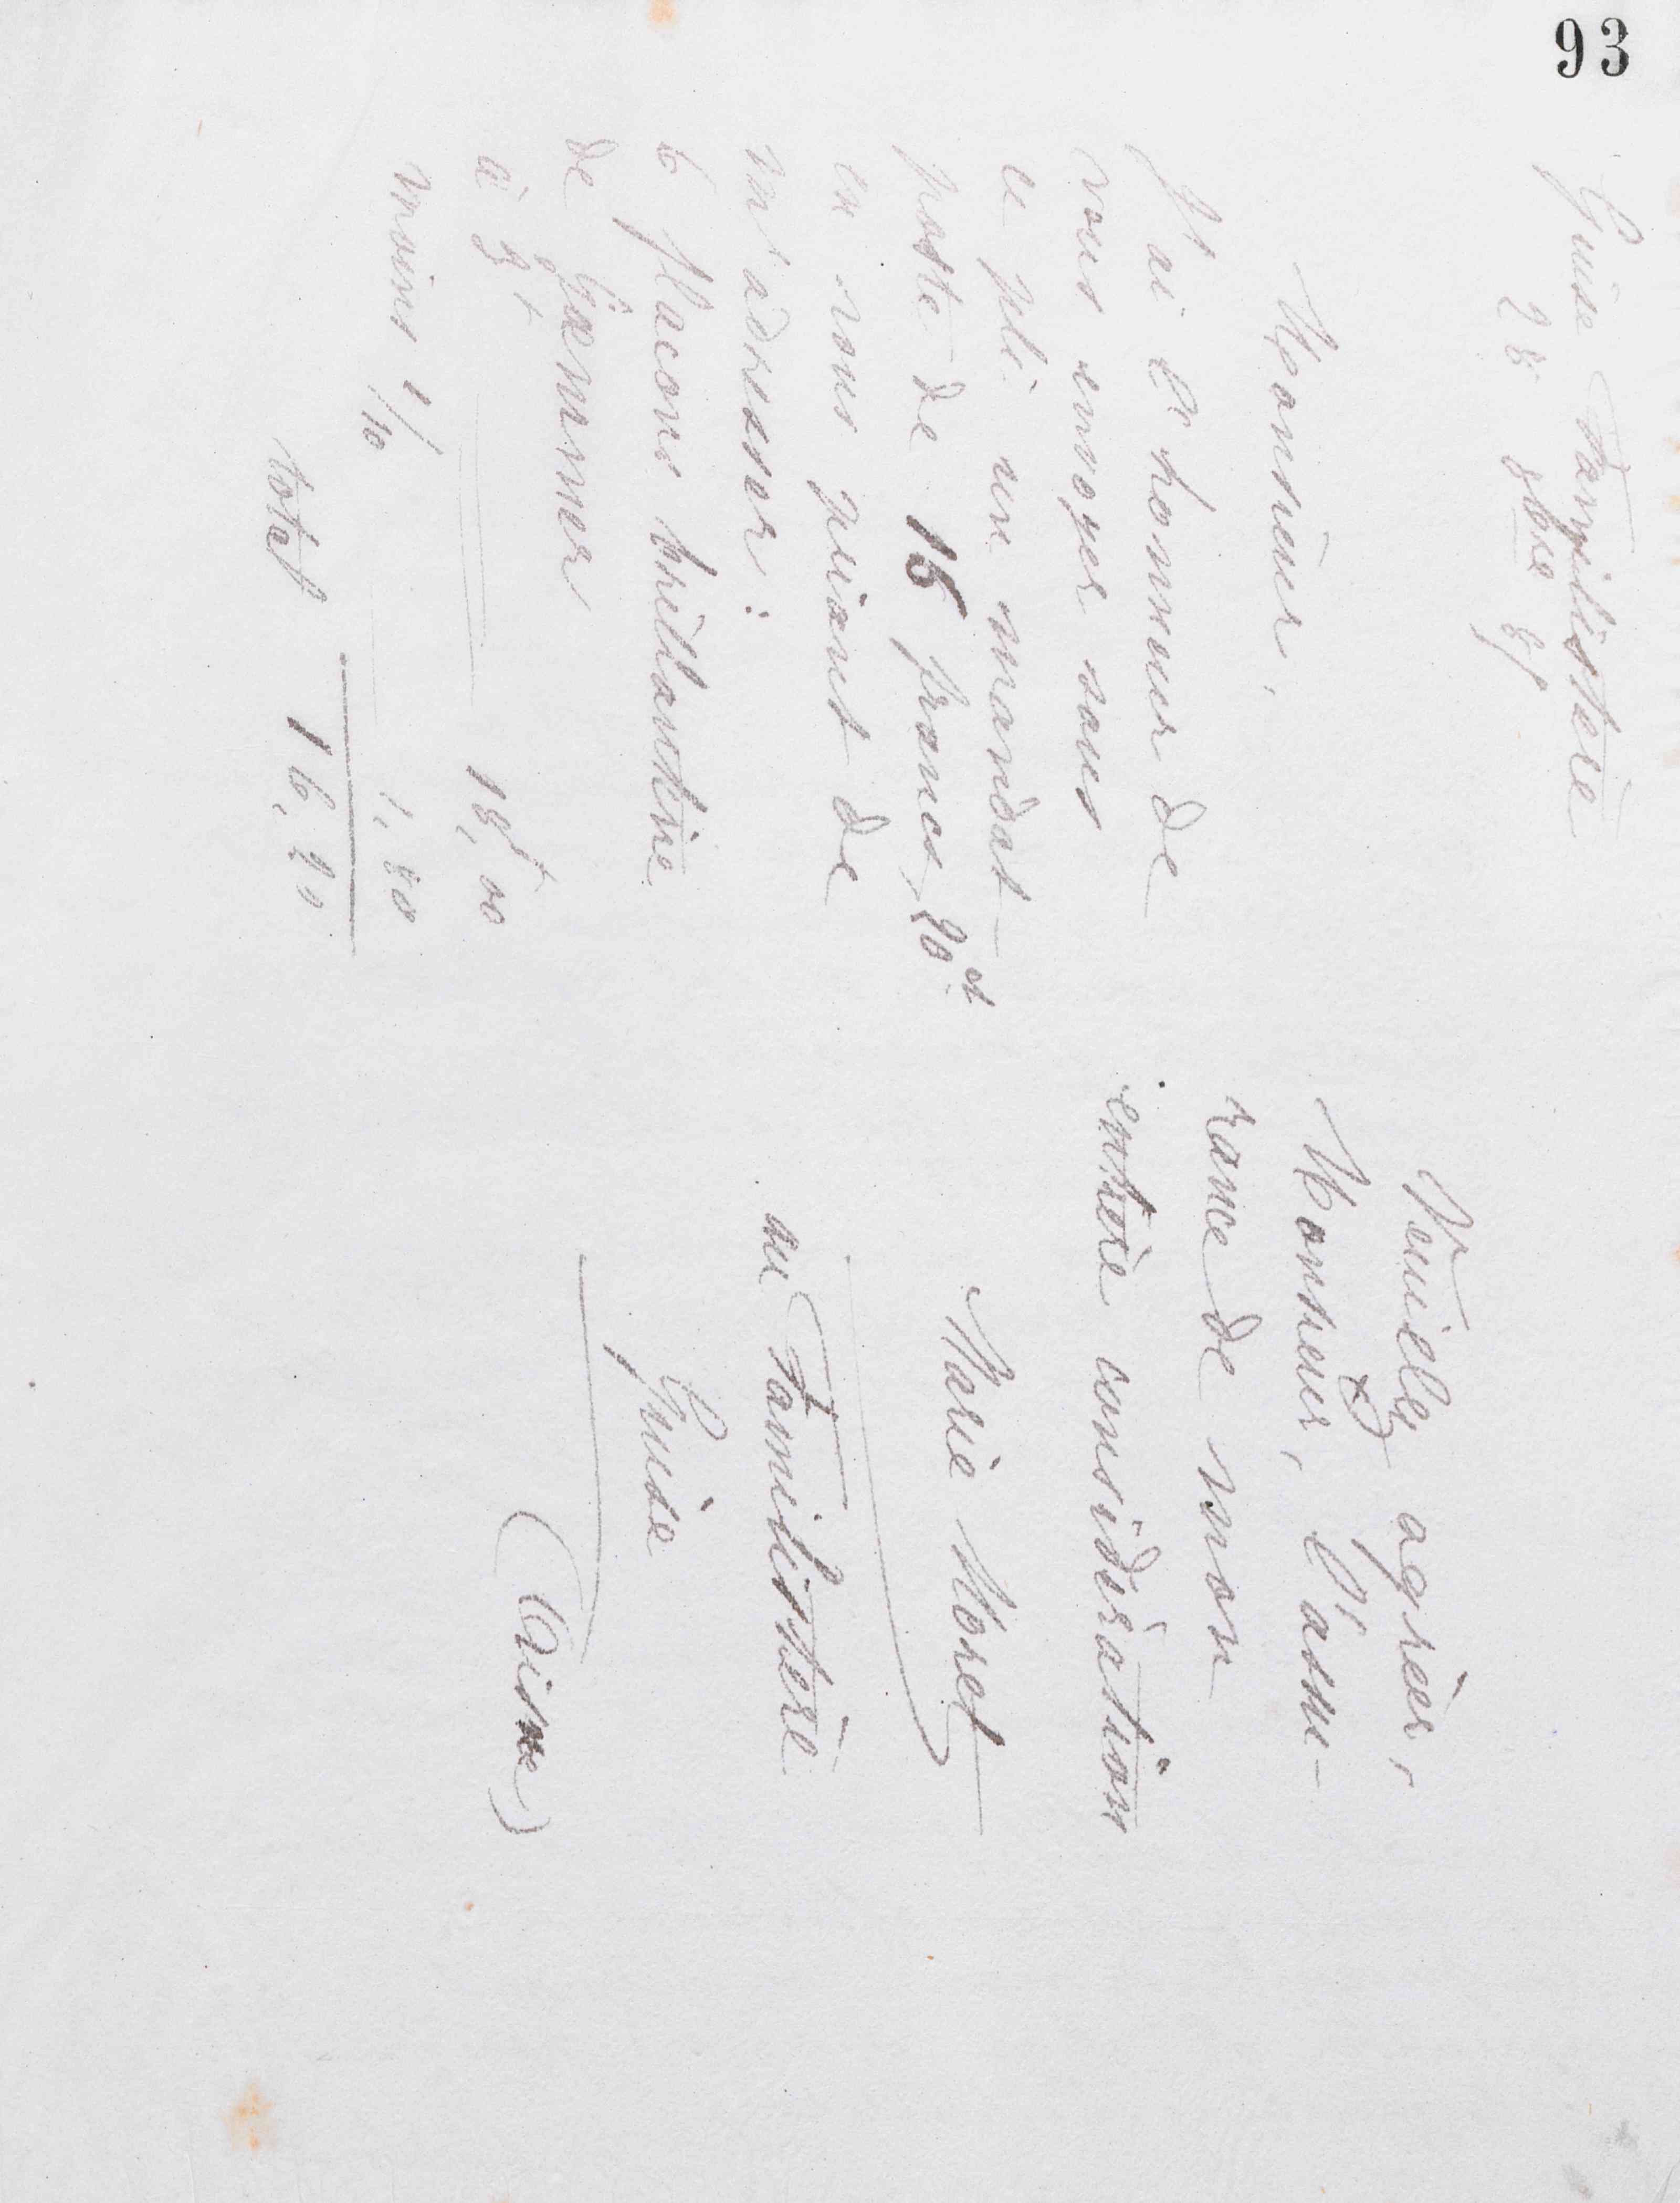 93
Guise Familistère
28 8bre
Monsieur,
J'ai l'honneur de
vous envoyer sous
ce pli un mandat-
poste de 16 francs, 20 ct
en vous priant de
m'adresser :
6 flacons brillantine
de
à 3f 18f,00
moins 1/10 1,80
total 16,20
Veuillez agréer,
Monsieur, l'assu-
rance de mon
entière considération
Marie Moret
au Familistère
Guise
(Aisne)